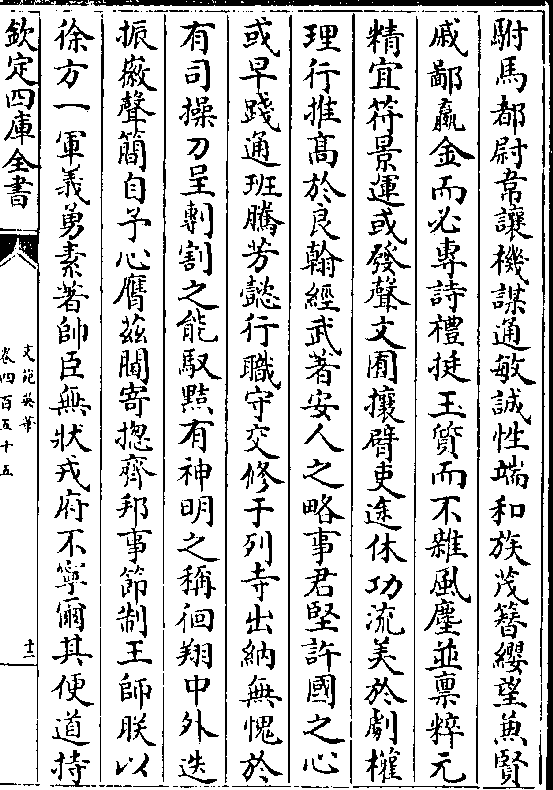 駙馬都尉韋讓機謀通敏誠性端和族茂簪纓望兼賢
戚鄙籯金而必專詩禮挺玉質而不雜風塵並禀粹元
精宜符景運或發聲文囿攘臂吏途休功流美於劇權
理行推髙於良翰經武著安人之略事君堅許國之心
或早踐通班騰芳懿行職守交修于列寺出納無愧於
有司操刀呈剸割之能馭黠有神明之稱徊翔中外迭
振徽聲簡自予心膺兹閫寄揔齊邦事節制王師朕以
徐方一軍義勇素著帥臣無狀戎府不寧爾其便道持
欽定四庫全書
文苑英華
卷四百五十五
十二